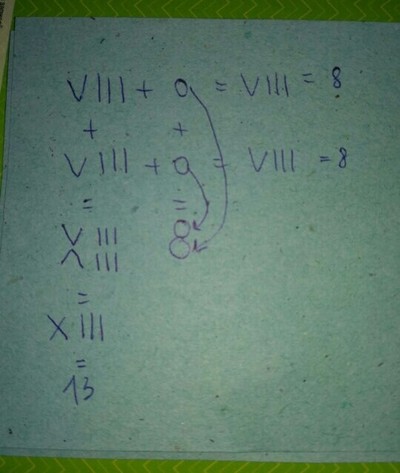 VIII + 0 = VIII = 8
+ +
VIII + 0 = VIII = 8
= =
VIII 8
ΛIII
=
XIII
=
13